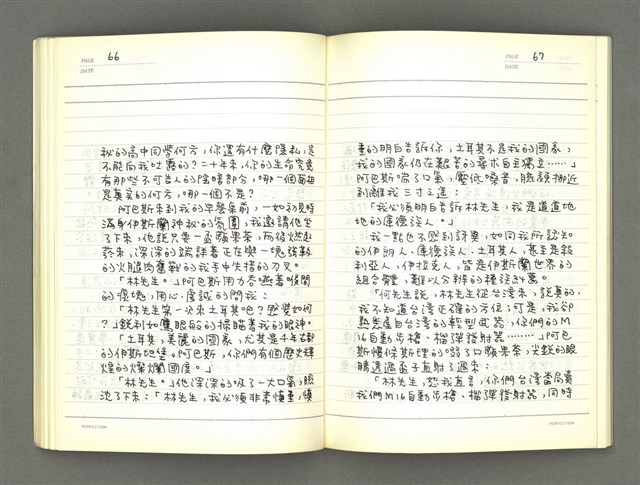 PAGE 66
DATE
秘的高中同學何方，你還有什麼隱私，是
不能向我吐露的？二十年來，你的生命究竟
有那些不可告人的陰暗部分，哪一個面相
是真實的何方，哪一個不是？
阿巴斯來到我的早餐桌前，一如初見時
滿身伊斯蘭神秘的氛圍，我邀請他坐
了下來，他說只要一盃蘋果茶，而後燃起
菸來，深深的端詳著正在與一塊強韌
的火腿肉奮戰的我手中失措的刀叉。
「林先生。」阿巴斯用力吞嚥著喉間
的煙塊，用心、虔誠的問我：
「林先生第一次來土耳其吧？感覺如何
？」銳利如鷹眼般的掃瞄著我的眼神。
「土耳其，美麗的國家，尤其是千年古都
的伊斯坦堡。阿巴斯，你們有個歷史輝
煌的燦爛國度。」
「林先生。」他深深的吸了一大口氣，臉
沈了下來：「林先生，我必須非常慎重，慎
PERFECTION
PAGE 67
DATE
重的明白告訴你，土耳其不是我的國家，
我的國家仍在艱苦的尋求自主獨立……」
阿巴斯喘了口氣，壓低嗓音，臉頰挪近
到離我三寸之遙：
「我必須明白告訴林先生，我是道道地
地的庫德族人。」
我一點也不感到訝異，如同我所認知
的伊朗人、庫德族人、土耳其人，甚至是敍
利亞人、伊拉克人，皆是伊斯蘭世界的
組合體，難以分辨的種族糾葛。
「何先生說，林先生從台灣來，說真的，
我不知道台灣正確的方位；可是，我卻
熟悉產自台灣的輕型武器，你們的M
16自動步槍、榴彈發射器……」阿巴
斯慢條斯理的啜了口蘋果茶，尖銳的眼
睛透過盃子直射了過來：
「林先生，恕我直言，你們台灣當局賣
我們M16自動步槍、榴彈發射器，同時
PERFECTION